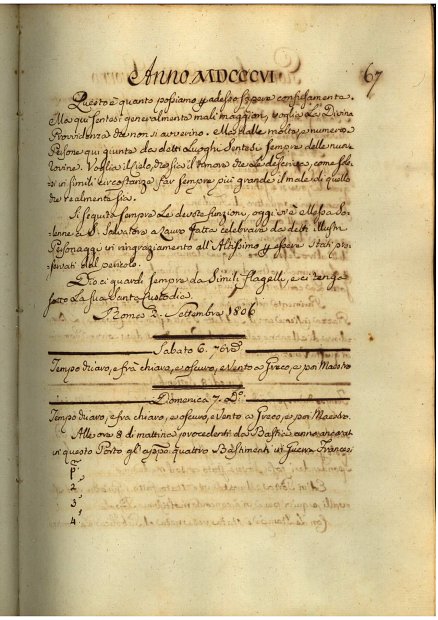 Anno MDCCCVI
67
Questo è quanto possiamo p adesso sapere confusamente.
Ma qui sentesi generalmente mali maggiori, voglia La Divina
Provvidenza che non si avverino. Ma dalle molte, e numerose
Persone qui giunte da detti Luoghi Sentesi sempre delle nuove
rovine. Voglia il Cielo, che sia il timore che Le descrive, come
in simili circostanze far sempre più grande il male di quello
che realmente sia.
Si seguita sempre Le devote funzioni, oggi vi è Messa So-
lenne a S. Salvatore in Lauro fatta celebrare da detti illustri
Personaggi in ringraziamento all'Altissimo p essere stati pre-
servati dal pericolo.
Dio ci guardi sempre da Simili flagelli, e ci tenga
sotto La sua Santa Custodia.
Roma 2. Settembre 1806
Sabato 6. 7bre
Tempo vario, e frà chiaro, e oscuro, e Vento a Greco, e poi Maestro
Domenica 7. Do:
Tempo vario, e frà chiaro, e oscuro, e Vento a Greco, e poi Maestro.
Alle ore 8 di mattina procedenti da Bastia anno ancorato
in questo Porto gl'appo quattro Bastimenti di Guerra Francesi
P
2
3
4